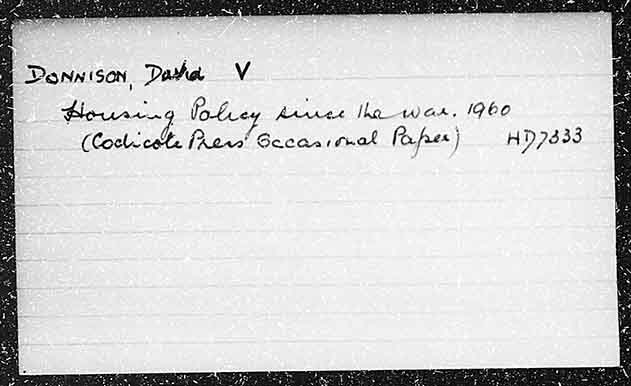 DONNISON, David V
Housing Policy since the war. 1960
(Codicote Press Occasional Paper) HD7333